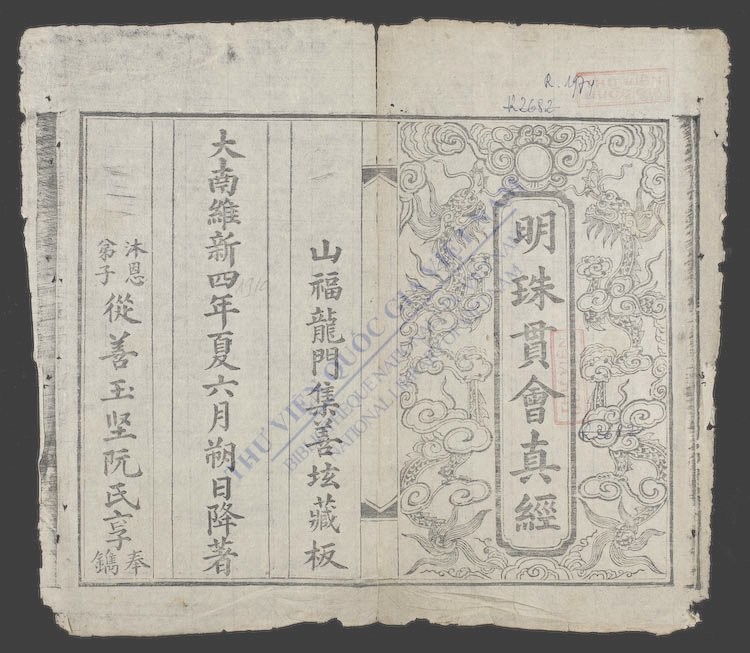 R.1974
R2682
THƯ VIỆN
QUỐC GIA
明珠貫會真經
山福龍門集善坛藏板
大南維新四年夏六月朔日降著
1910
沐恩
弟子
從善玉坚阮氏享
奉
鐫
THƯ VIỆN QUỐC GIA VIỆT NAM
BIBLIOTHEQUE NATIONALE DU VIETNAM
NATIONAL LIBRARY OF VIETNAM